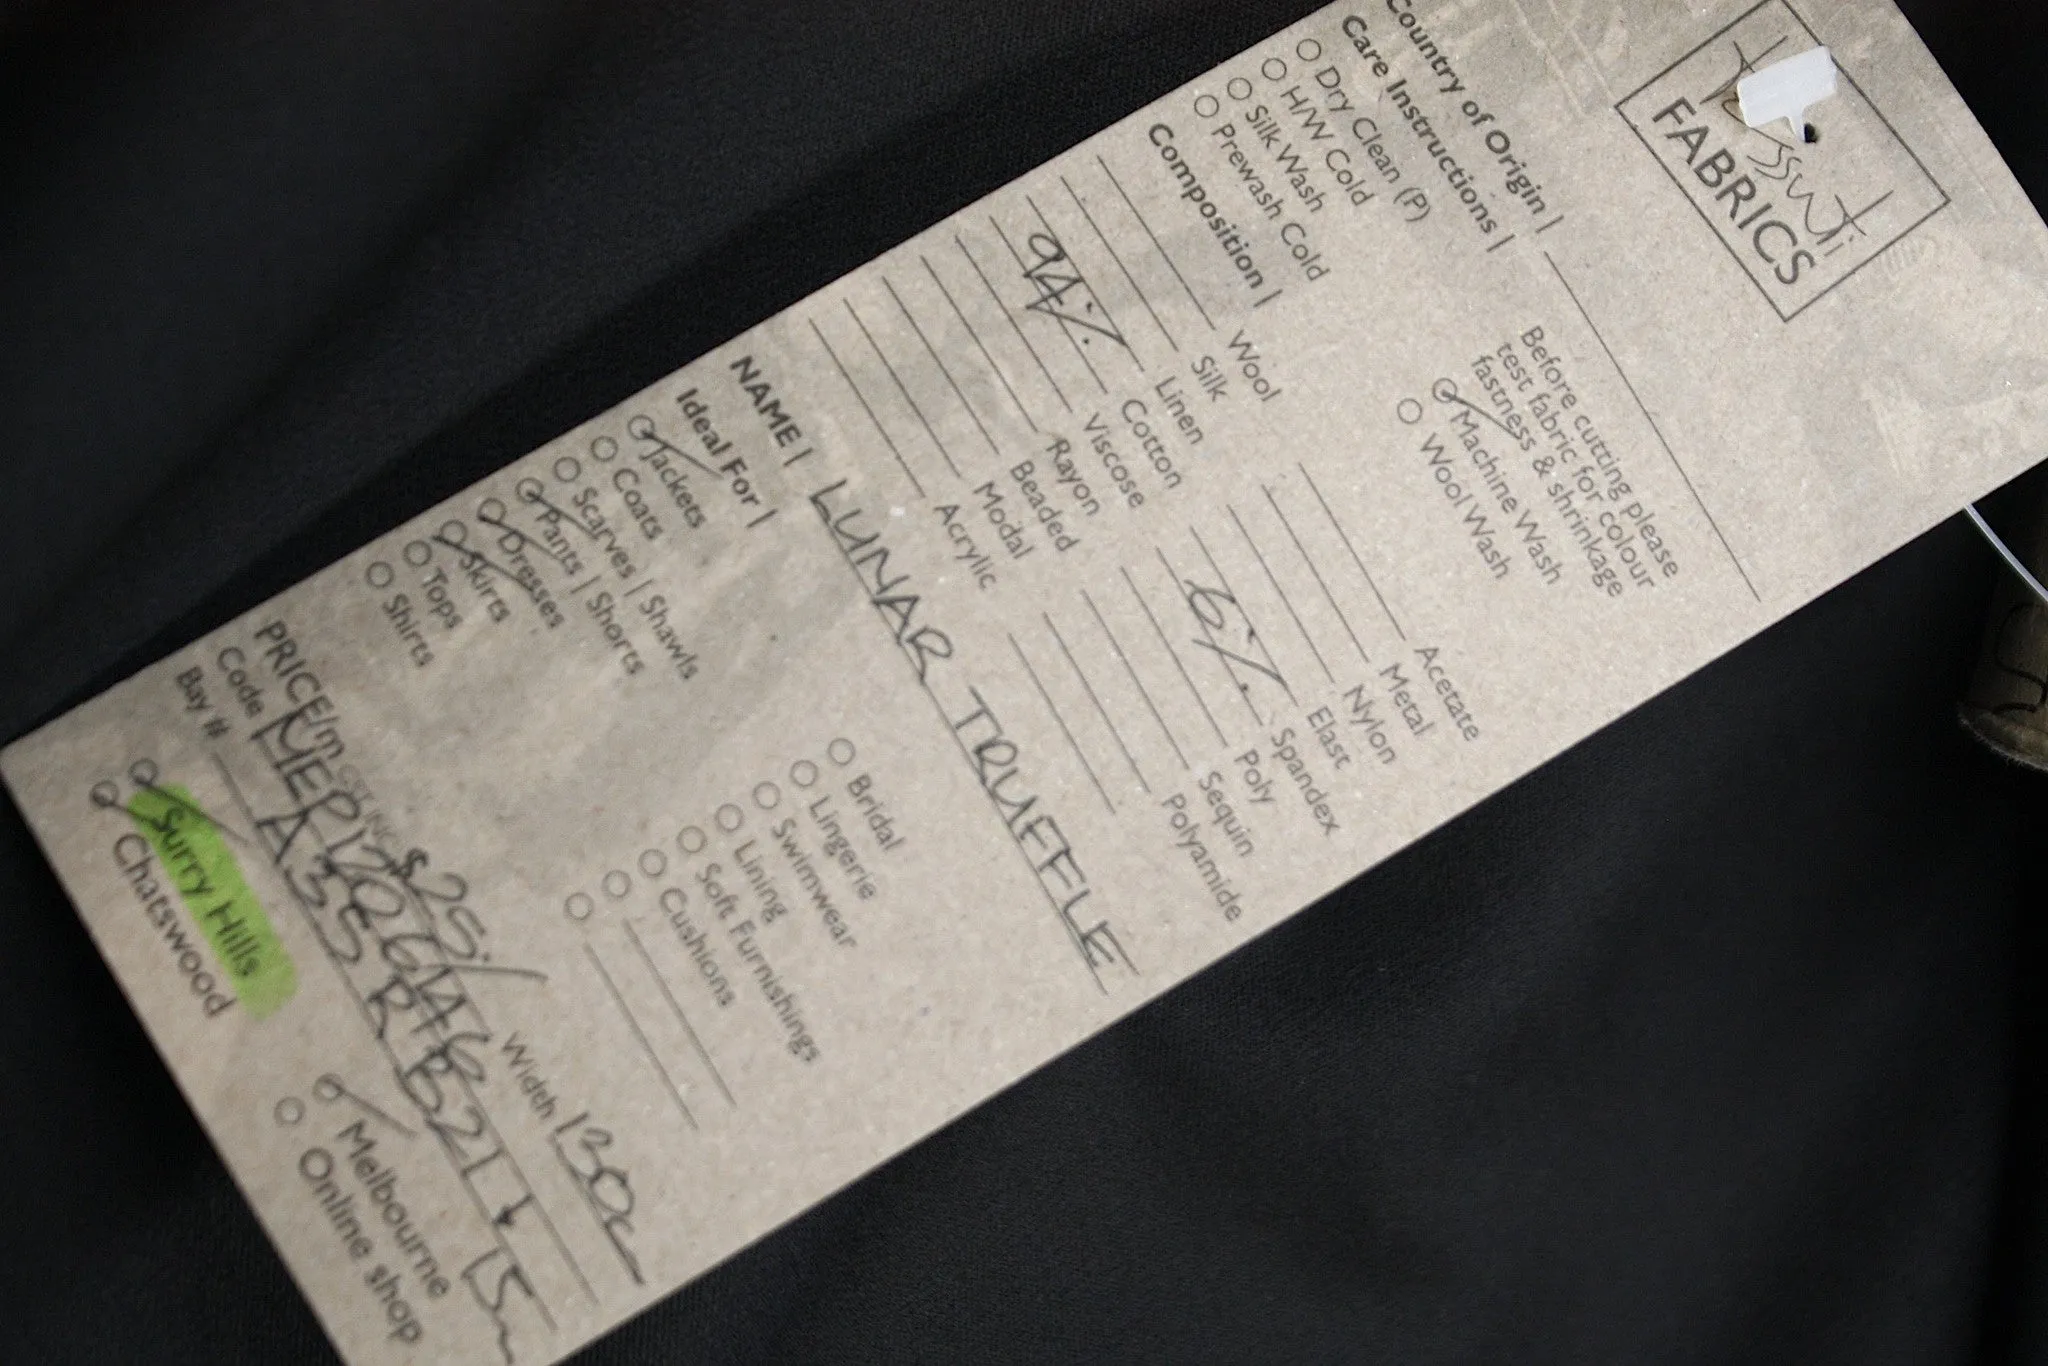 Tessuti
FABRICS
Country of Origin |
Care Instructions |
Before cutting please
test fabric for colour
fastness & shrinkage
Dry Clean (P)
H/W Cold
Silk Wash
Prewash Cold
Machine Wash
Wool Wash
Composition |
Wool
Silk
Linen
94% Cotton
Viscose
Rayon
Beaded
Modal
Acrylic
Acetate
Metal
Nylon
Elast
6% Spandex
Poly
Sequin
Polyamide
NAME | LUNAR TRUFFLE
Ideal For |
Jackets
Coats
Scarves | Shawls
Pants | Shorts
Dresses
Skirts
Tops
Shirts
Bridal
Lingerie
Swimwear
Lining
Soft Furnishings
Cushions
PRICE/m GST INC $25/ Width 130c
Code
Bay # A35 15m
Surry Hills
Chatswood
Melbourne
Online shop